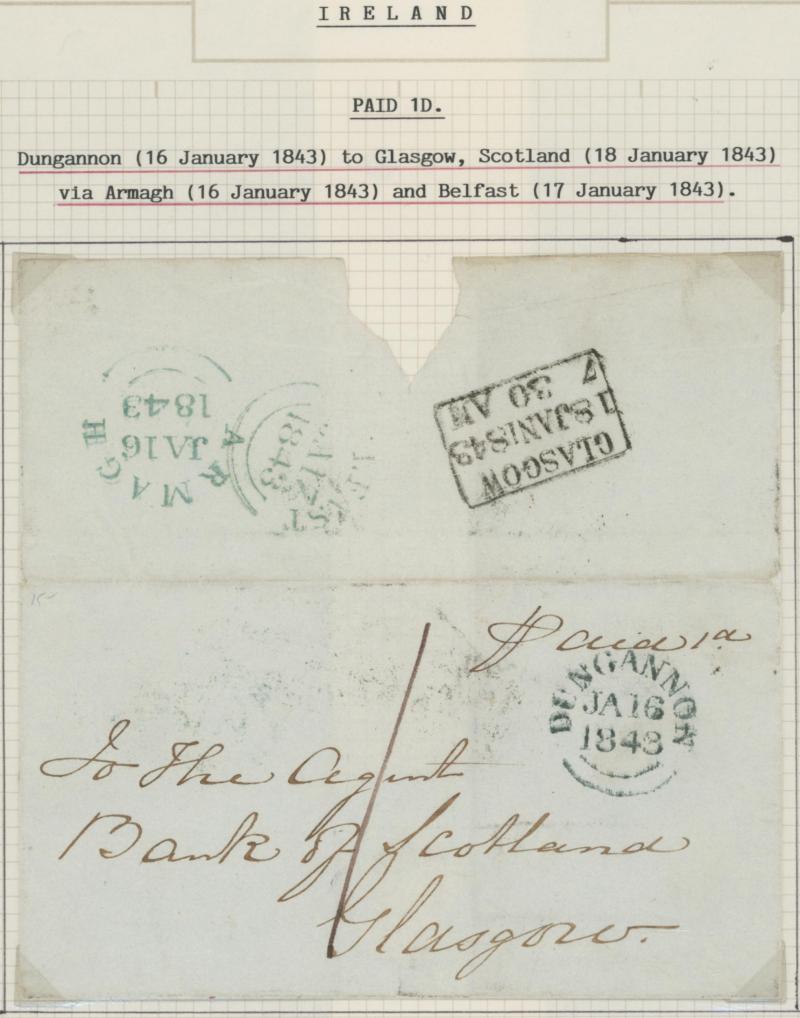 IRELAND
PAID 1D.
Dungannon (16 January 1843) to Glasgow, Scotland (18 January 1843)
via Armagh (16 January 1843) and Belfast (17 January 1843).
ARMAGH
JA 16
1843
1843
GLASGOW
18JAN1843
7
30 AM
Paid 1d
DUNGANNON
JA 16
1843
To The Agent
Bank of Scotland
Glasgow.